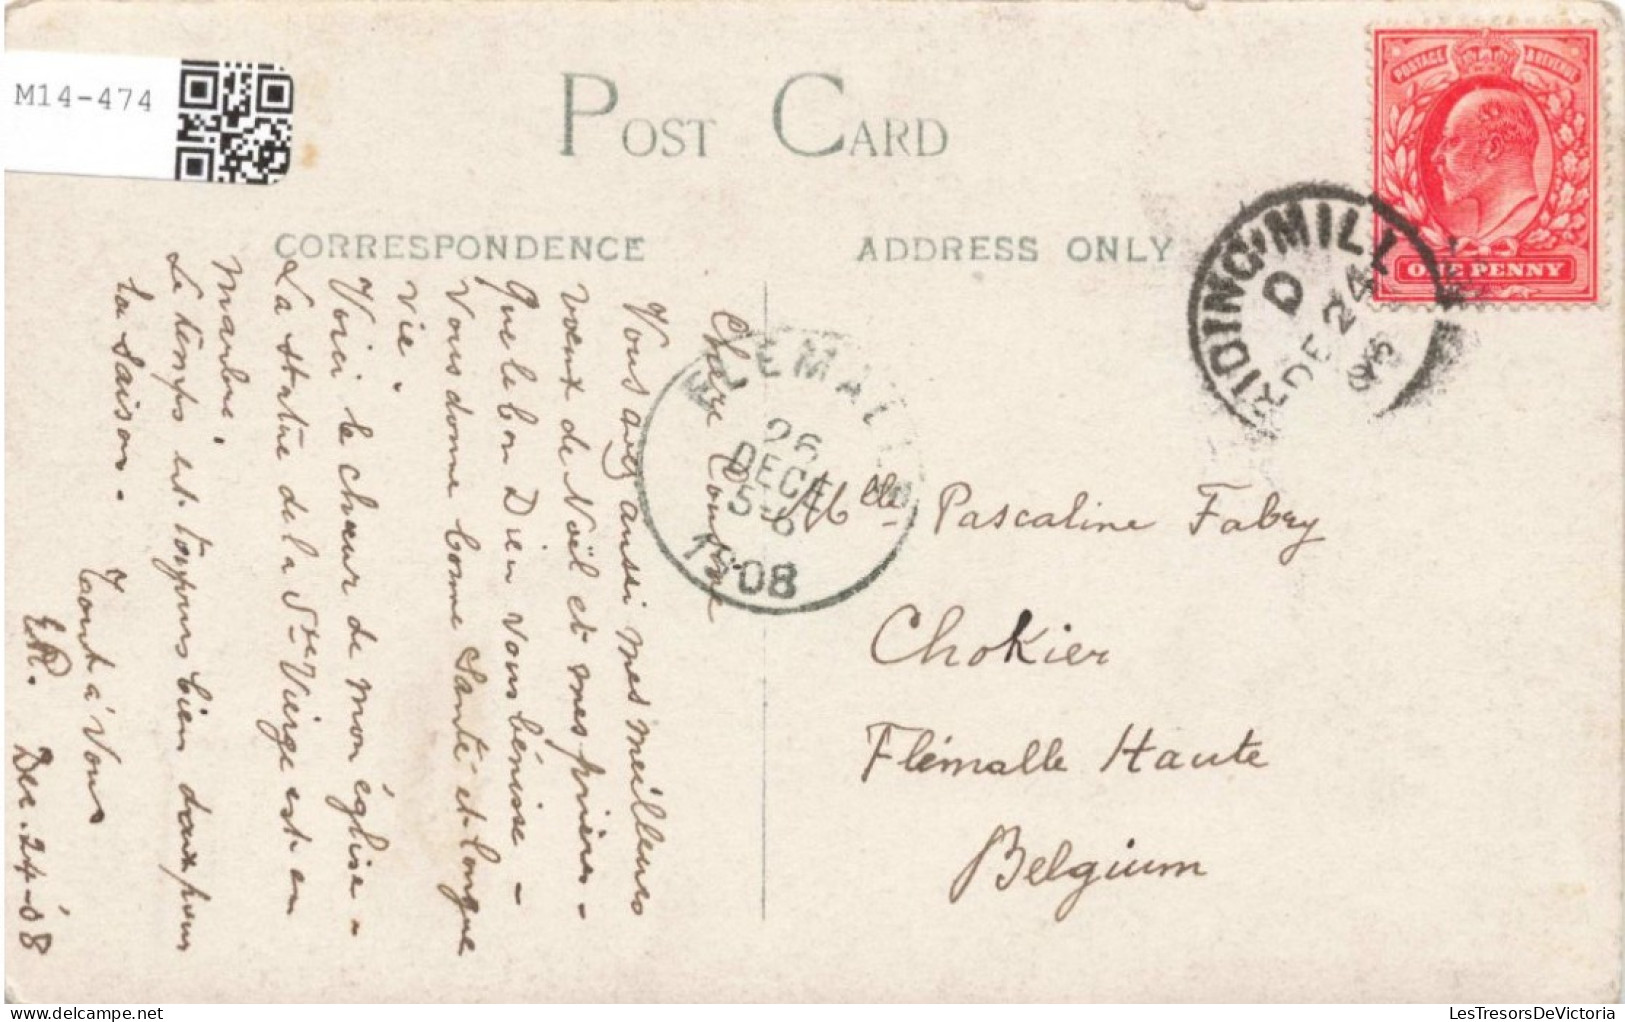 M14-474
POST CARD
CORRESPONDENCE
ADDRESS ONLY
POSTAGE & REVENUE
ONE PENNY
RIDING MILL
D
DE 24
08
FLEMALLE
26
DECE
5-6
1908
Chère Cousine
Vous avez aussi mes meilleurs
voeux de Noël et mes prières -
Que le bon Dieu vous bénisse -
Vous donne bonne Santé et longue
vie.
Voici le chœur de mon église -
La statue de la Ste Vierge est en
marbre.
Le temps est toujours bien doux pour
la saison.
Tout à Vous
Dec. 24-'08
Mlle Pascaline Fabry
Chokier
Flémalle Haute
Belgium
LesTresorsDeVictoria